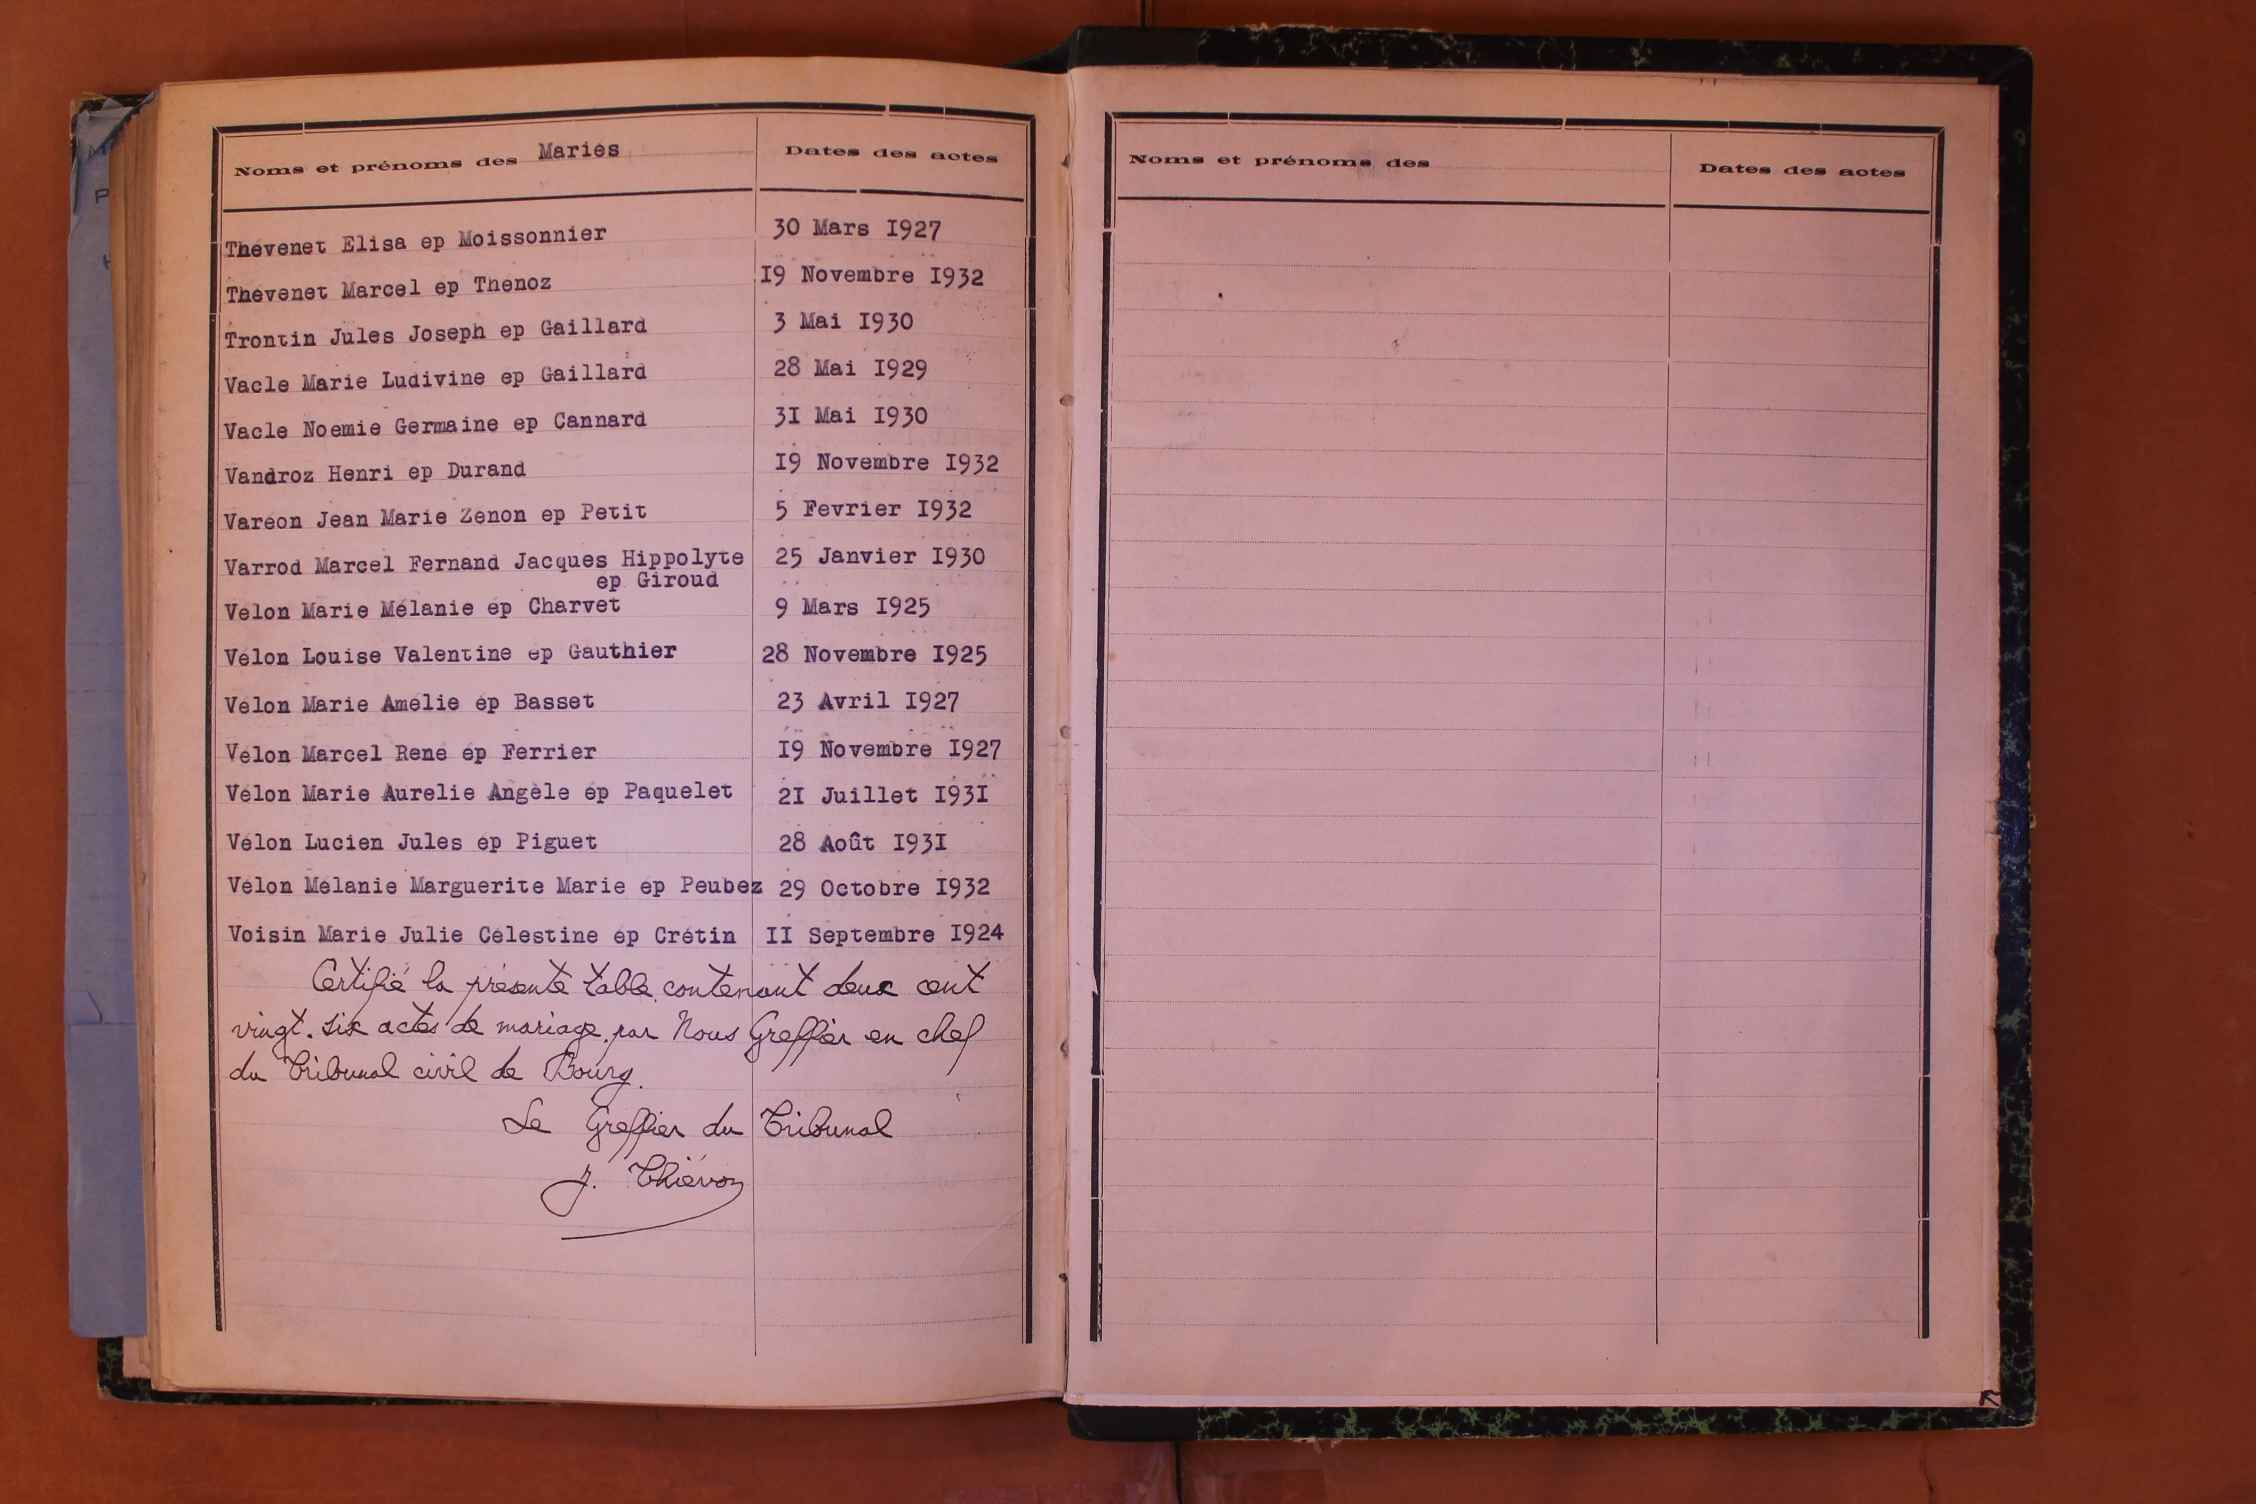 Noms et prénoms des Mariés
Dates des actes
Thévenet Elisa ep Moissonnier 30 Mars 1927
Thévenet Marcel ep Thenoz 19 Novembre 1932
Trontin Jules Joseph ep Gaillard 3 Mai 1930
Vacle Marie Ludivine ep Gaillard 28 Mai 1929
Vacle Noemie Germaine ep Cannard 31 Mai 1930
Vandroz Henri ep Durand 19 Novembre 1932
Varéon Jean Marie Zenon ep Petit 5 Fevrier 1932
Varrod Marcel Fernand Jacques Hippolyte 25 Janvier 1930
ep Giroud
Velon Marie Mélanie ep Charvet 9 Mars 1925
Vélon Louise Valentine ep Gauthier 28 Novembre 1925
Vélon Marie Amélie ép Basset 23 Avril 1927
Vélon Marcel René ép Ferrier 19 Novembre 1927
Vélon Marie Aurelie Angèle ép Paquelet 21 Juillet 1931
Vélon Lucien Jules ép Piguet 28 Août 1931
Vélon Mélanie Marguerite Marie ép Peubez 29 Octobre 1932
Voisin Marie Julie Célestine ép Crétin 11 Septembre 1924
Certifié la présente table contenant deux cent
vingt-six actes de mariage par Nous Greffier en chef
du Tribunal civil de Bourg.
Le Greffier du Tribunal
J. Thiévon
Noms et prénoms des
Dates des actes